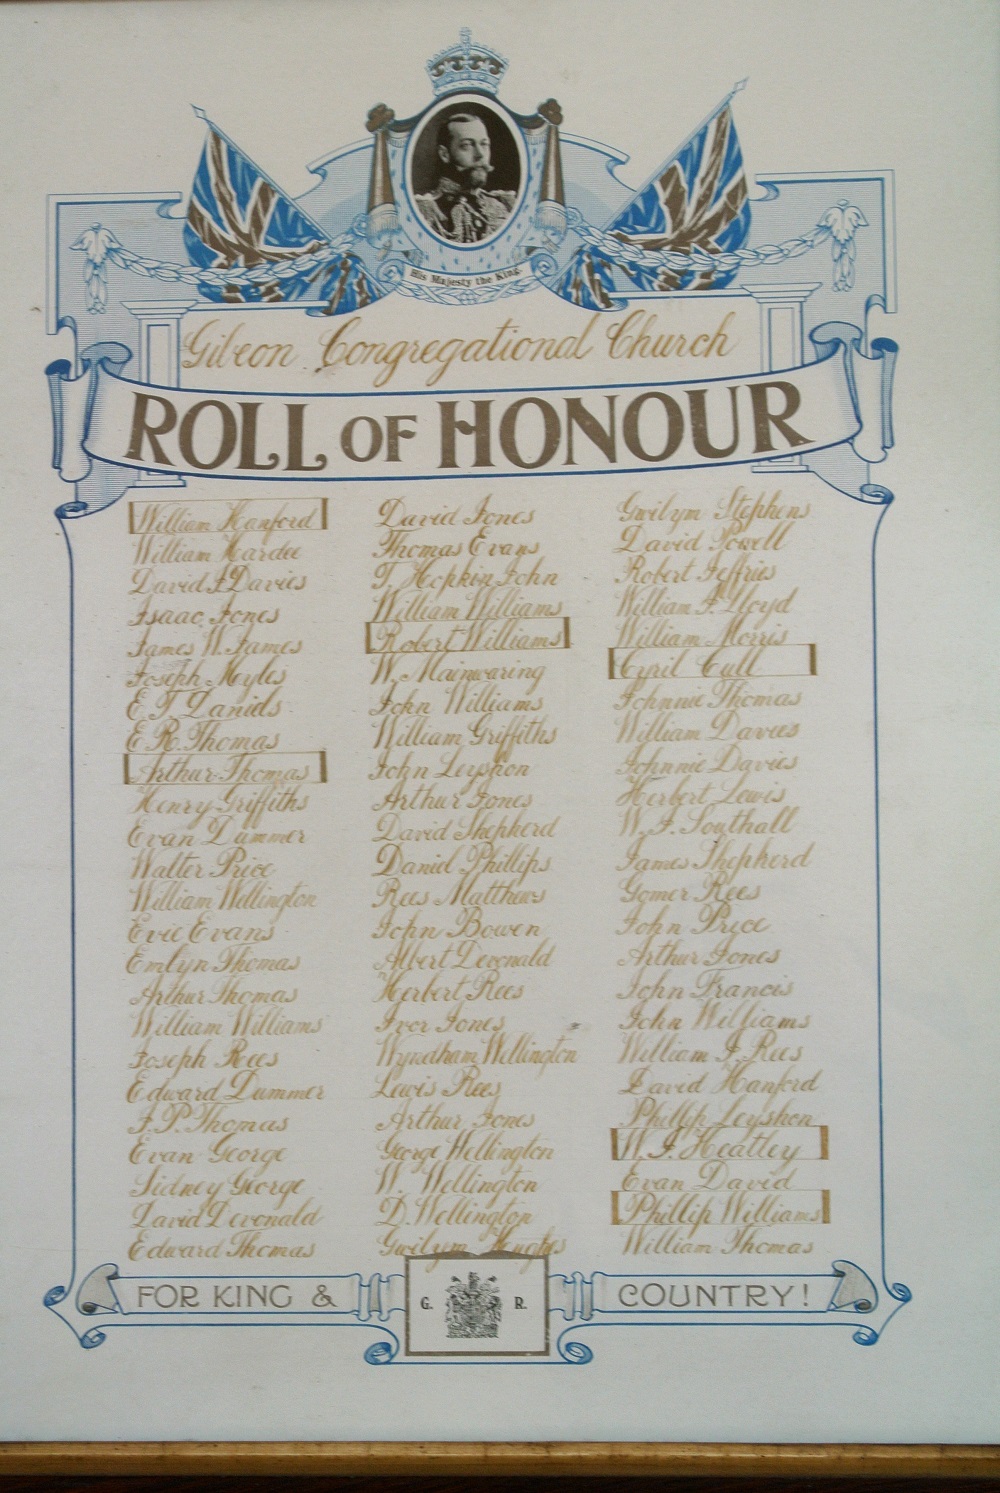 His Majesty the King.
Gibeon Congregational Church
ROLL OF HONOUR
William Hanford
William Hardee
David J Davies
Isaac Jones
James W. James
Joseph Myles
E. T. Daniels
E. R. Thomas
Arthur Thomas
Henry Griffiths
Evan Dummer
Walter Price
William Wellington
Evie Evans
Emlyn Thomas
Arthur Thomas
William Williams
Joseph Rees
Edward Dummer
J. P. Thomas
Evan George
Sidney George
David Devonald
Edward Thomas
David Jones
Thomas Evans
T. Hopkin John
William Williams
Robert Williams
W. Mainwaring
John Williams
William Griffiths
John Leyshon
Arthur Jones
David Shepherd
Daniel Phillips
Rees Matthews
John Bowen
Albert Devonald
Herbert Rees
Ivor Jones
Wyndham Wellington
Lewis Rees
Arthur Jones
George Wellington
W. Wellington
D. Wellington
Gwilym Hughes
Gwilym Stephens
David Powell
Robert Jeffries
William J. Lloyd
William Morris
Cyril Cull
Johnnie Thomas
William Davies
Johnnie Davies
Herbert Lewis
W. J. Southall
James Shepherd
Gomer Rees
John Price
Arthur Jones
John Francis
John Williams
William J. Rees
David Hanford
Phillip Leyshon
W. J. Heatley
Evan David
Phillip Williams
William Thomas
FOR KING &
G. R.
COUNTRY!